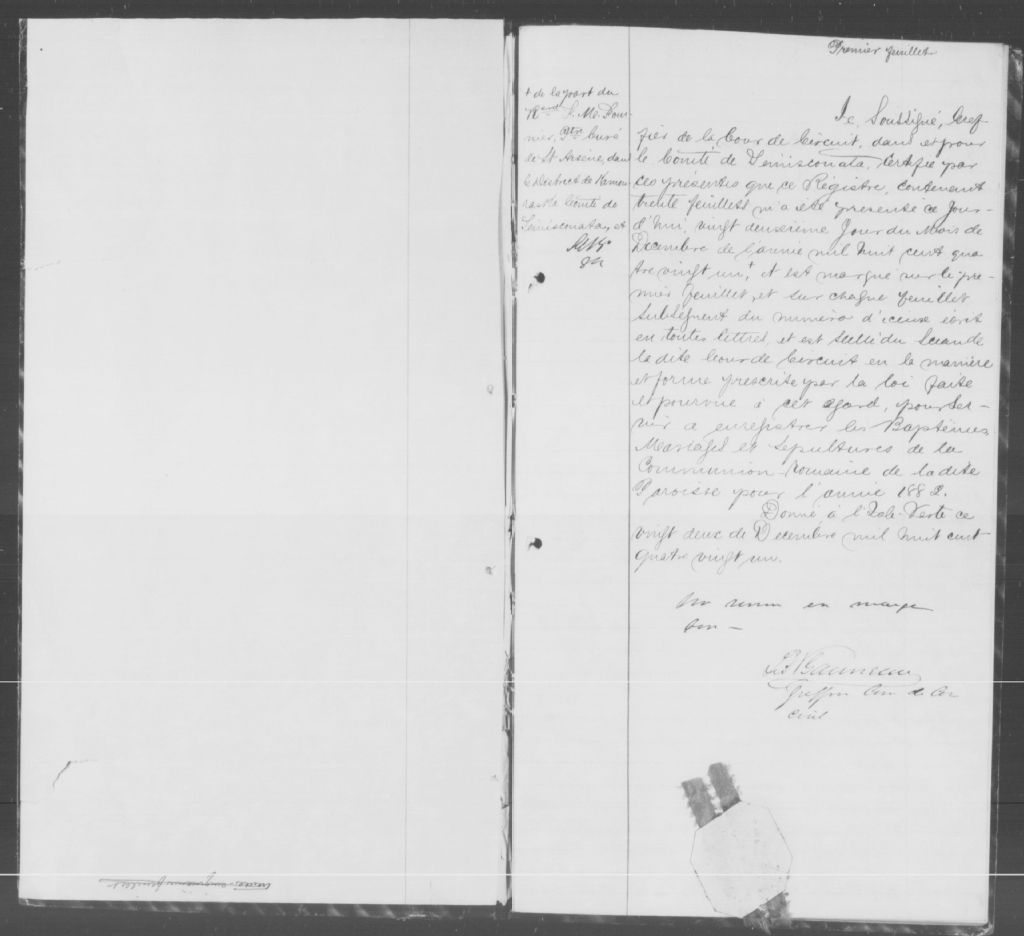 Premier feuillet
+ de la part du
Revd
nier, Ptre Curé
de St Arsène, dans
le District de Kamou
raska Comté de
Témiscouata, et
Je, Soussigné, Gref-
fier de la Cour de Circuit, dans et pour
le Comté de Témiscouata, Certifie par
ces présentes que ce Régistre, contenant
trente feuillets m'a été présenté ce Jour-
d'hui, vingt deuxième Jour du Mois de
Décembre de l'année mil huit cent qua
tre vingt un, + et est marqué sur le pre-
mier feuillet, et sur chaque feuillet
subséquent du numéro d'iceux écrit
en toutes lettres, et est scellé du Sceau de
la dite Cour de Circuit en la manière
et forme prescrite par la loi faite
et pourvue à cet égard, pour ser-
vir à enregistrer les Baptêmes,
Mariages et Sépultures de la
Communion-Romaine de la dite
Paroisse pour l'année 1882.
Donné à l'Isle-Verte ce
vingt deux de Décembre mil huit cent
quatre vingt un.
Un renvoi en marge
bon —
Greffier